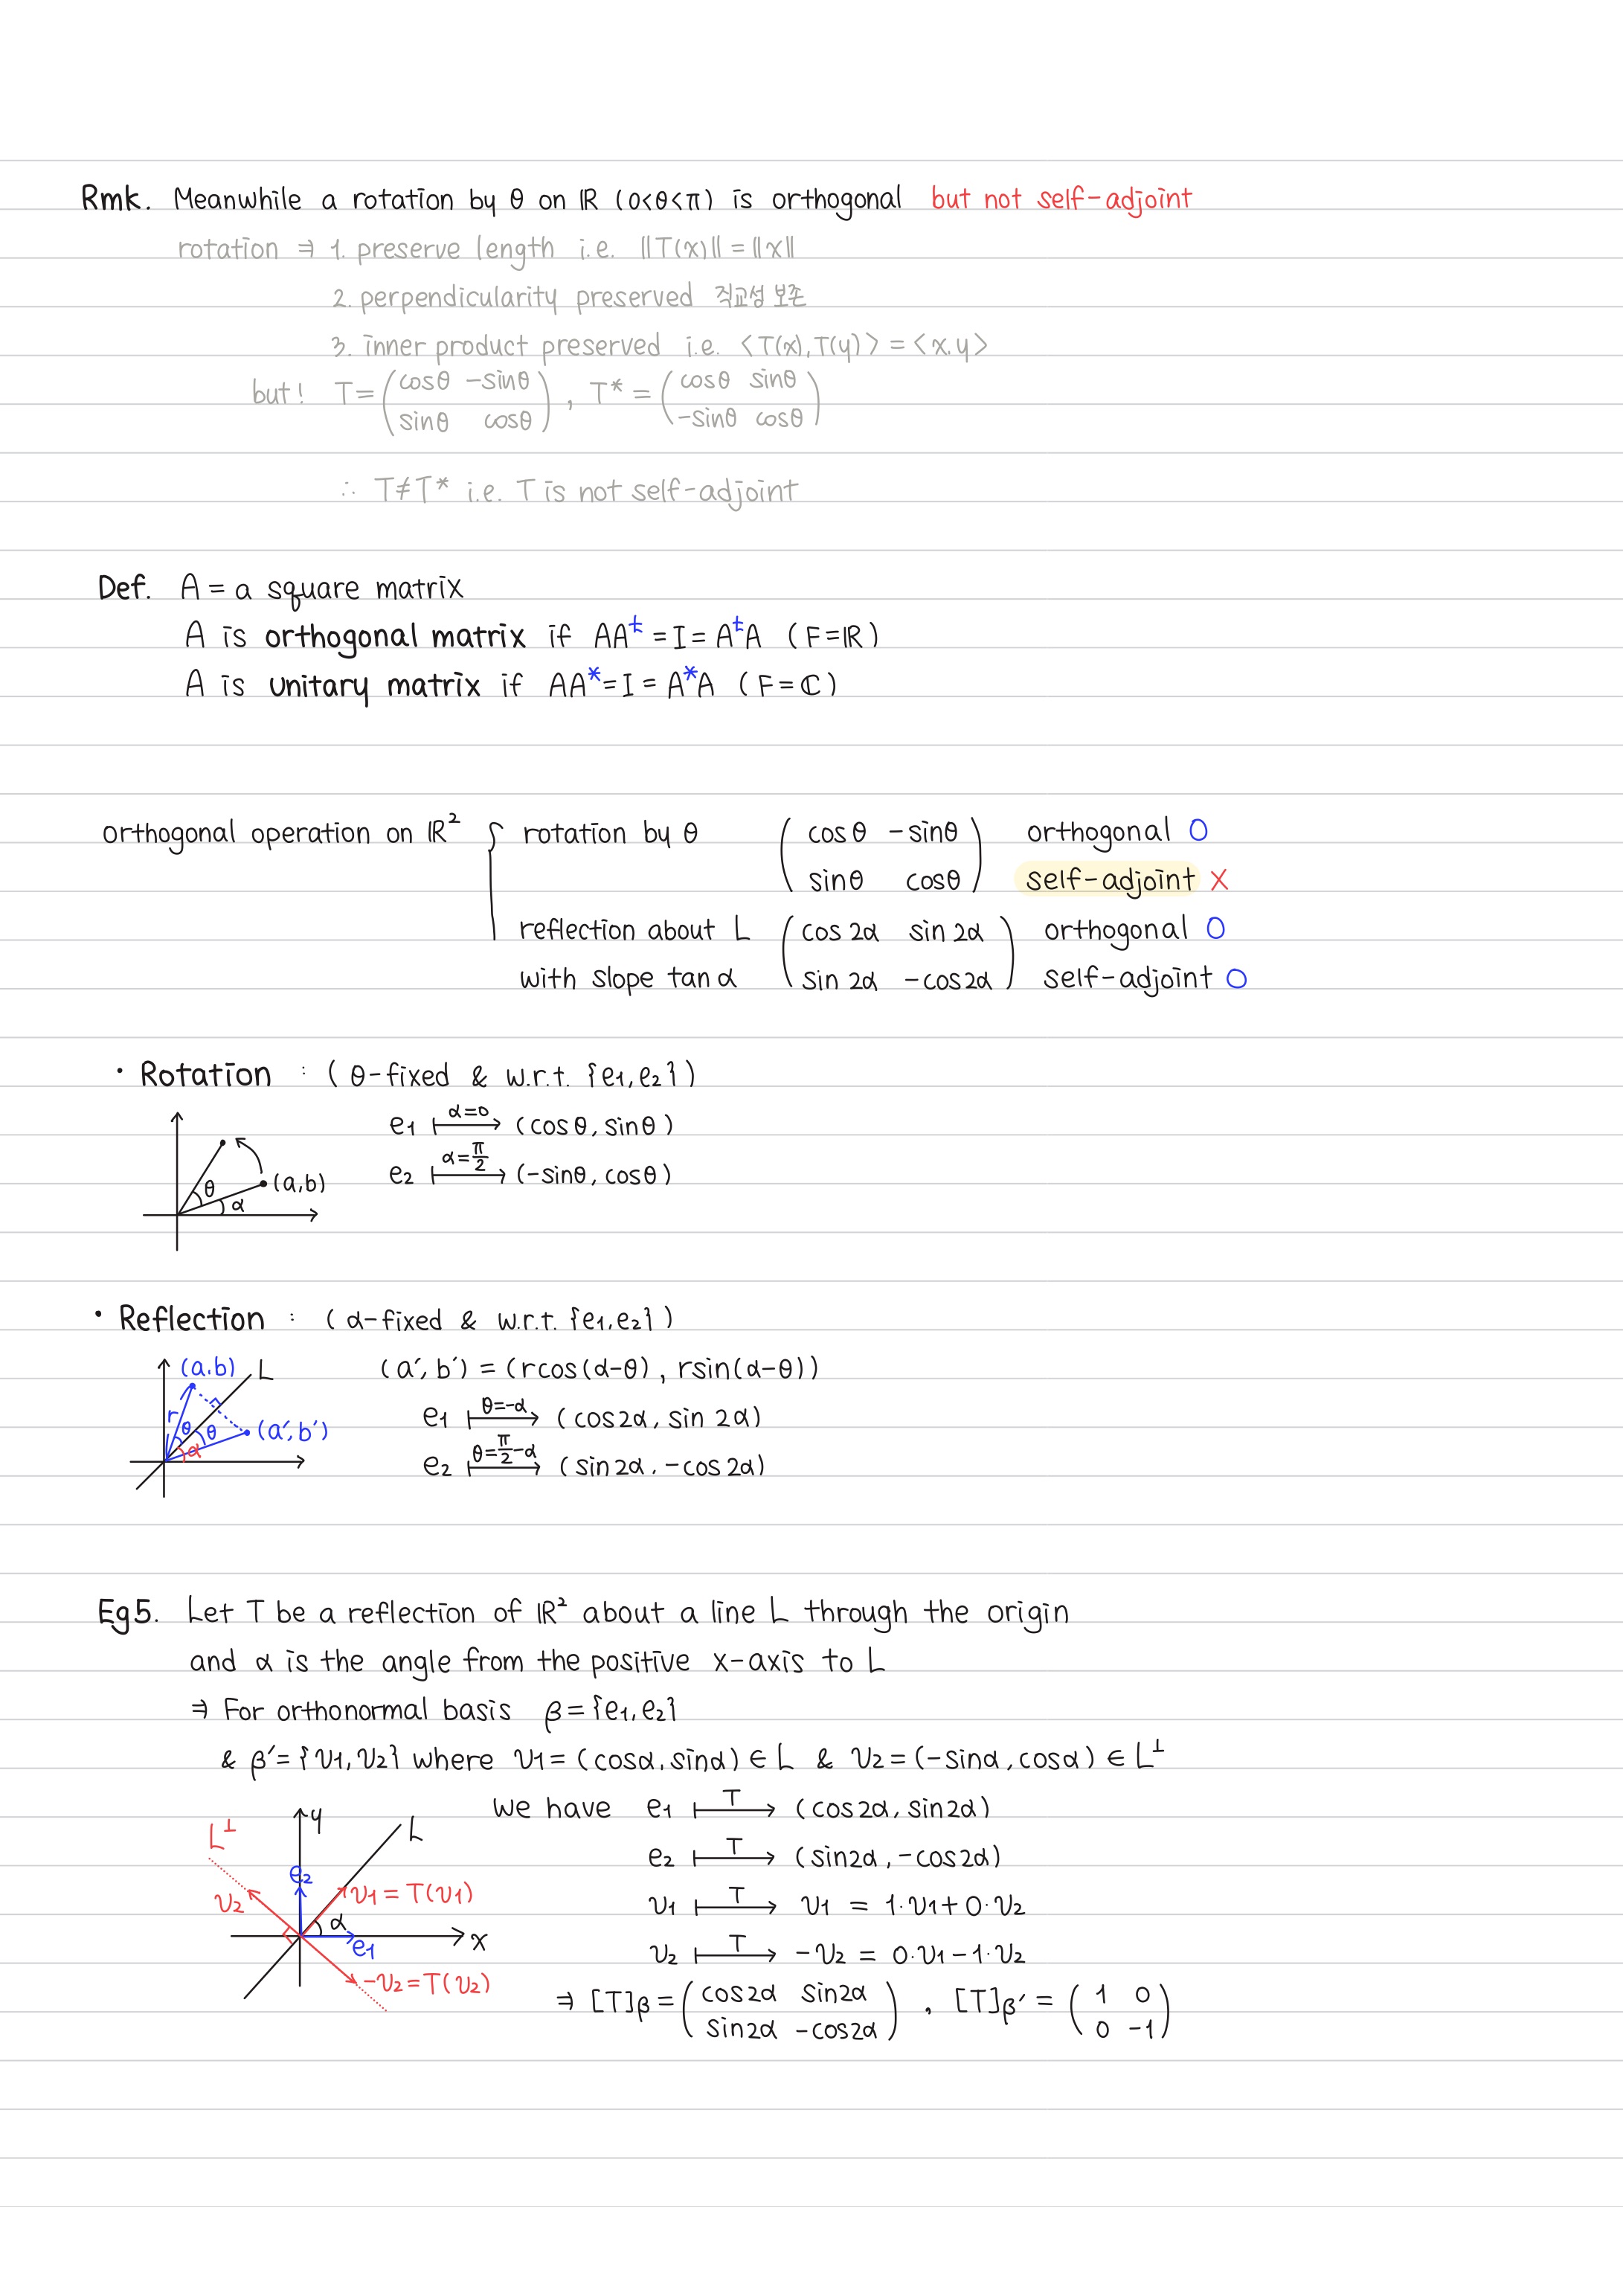 Rmk. Meanwhile a rotation by θ on ℝ (0<θ<π) is orthogonal but not self-adjoint
rotation ⇒ 1. preserve length i.e. ‖T(x)‖ = ‖x‖
2. perpendicularity preserved 직교성 보존
3. inner product preserved i.e. <T(x), T(y)> = <x.y>
but! T = (cosθ -sinθ
sinθ cosθ) , T* = (cosθ sinθ
-sinθ cosθ)
∴ T≠T* i.e. T is not self-adjoint
Def. A = a square matrix
A is orthogonal matrix if AAᵗ = I = AᵗA (F=ℝ)
A is unitary matrix if AA* = I = A*A (F=ℂ)
orthogonal operation on ℝ² { rotation by θ (cosθ -sinθ orthogonal O
sinθ cosθ) self-adjoint X
reflection about L (cos 2α sin 2α orthogonal O
with slope tan α sin 2α -cos2α) self-adjoint O
· Rotation : (θ-fixed & w.r.t. {e₁, e₂})
e₁ ↦ α=0 (cosθ, sinθ)
e₂ ↦ α=π/2 (-sinθ, cosθ)
(a,b)
θ
α
· Reflection : (α-fixed & w.r.t. {e₁, e₂})
(a.b) L
(a′, b′) = (rcos(α-θ), rsin(α-θ))
e₁ ↦ θ=-α (cos2α, sin 2α)
r θ θ (a′, b′)
α
e₂ ↦ θ=π/2-α (sin2α. -cos2α)
Eg5. Let T be a reflection of ℝ² about a line L through the origin
and α is the angle from the positive x-axis to L
⇒ For orthonormal basis β = {e₁, e₂}
& β′ = {v₁, v₂} where v₁ = (cosα. sinα) ∈ L & v₂ = (-sinα, cosα) ∈ L⊥
We have e₁ ↦ T (cos2α, sin2α)
e₂ ↦ T (sin2α, -cos2α)
v₁ ↦ T v₁ = 1·v₁+0·v₂
v₂ ↦ T -v₂ = 0·v₁-1·v₂
⇒ [T]β = (cos2α sin2α
sin2α -cos2α) , [T]β′ = (1 0
0 -1)
y
L
L⊥
e₂
v₂
v₁ = T(v₁)
α
x
e₁
-v₂ = T(v₂)